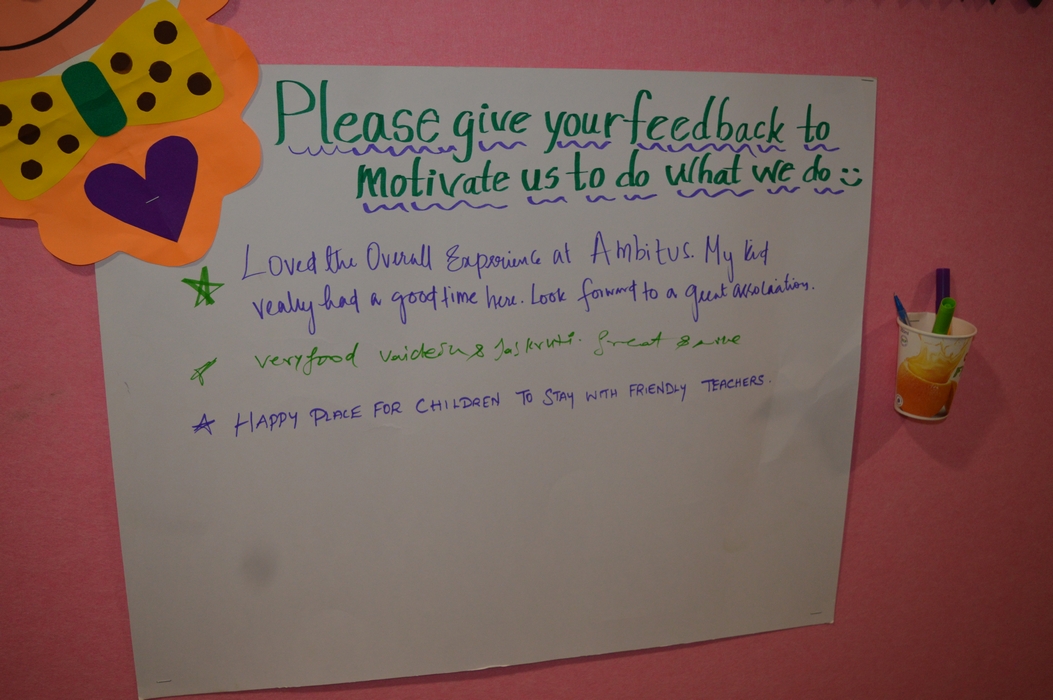 Please give your feedback to
motivate us to do what we do :)
Loved the Overall Experience at Ambitus. My kid
really had a good time here. Look forward to a great association.
very good & Jaskruti. Great
HAPPY PLACE FOR CHILDREN TO STAY WITH FRIENDLY TEACHERS.